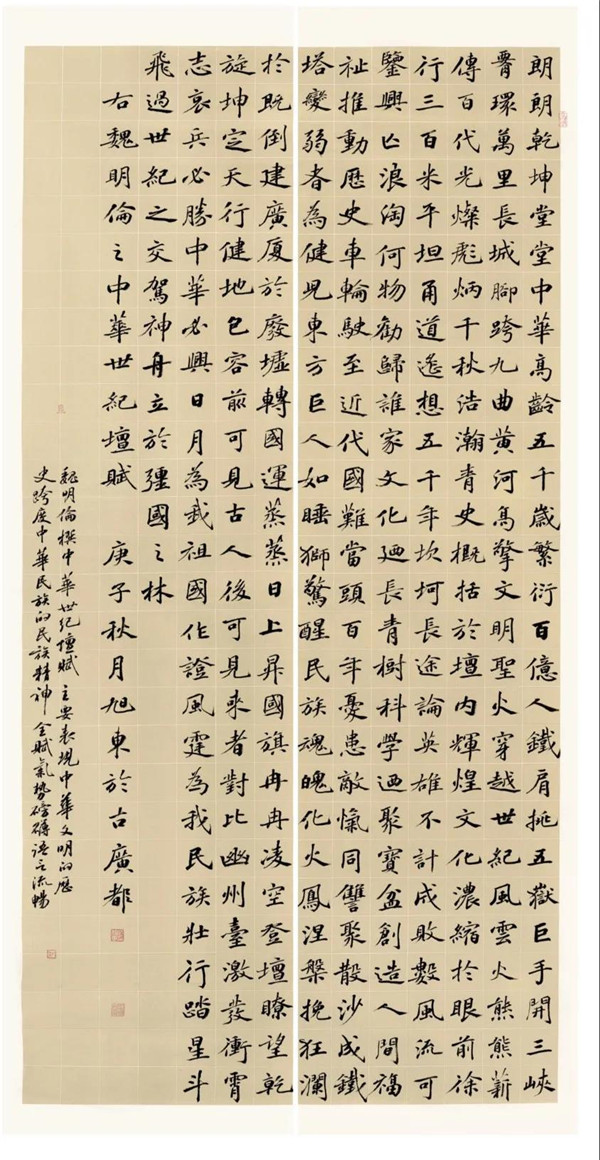 朗朗乾坤堂堂中華高齡五千歲繁衍百億人鐵肩挑五嶽巨手開三峽
臂環萬里長城腳跨九曲黃河高擎文明聖火穿越世紀風雲火熊熊薪
傳百代光燦彪炳千秋浩瀚青史概括於壇内輝煌文化濃縮於眼前徐
行三百米平坦甬道遙想五千年坎坷長途論英雄不計成敗數風流可
鑒興亡浪淘何物勸歸誰家文化迺長青樹科學迺聚寶盆創造人間福
祉推動歷史車輪駛至近代國難當頭百年憂患敵愾同讎聚散沙成鐵
塔變弱者為健兒東方巨人如睡獅驚醒民族魂魄化火鳳涅槃挽狂瀾
於既倒建廣厦於廢墟轉國運蒸蒸日上昇國旗冉冉凌空登壇瞭望乾
旋坤定天行健地包容前可見古人後可見來者對比幽州臺激發衝霄
志哀兵必勝中華必興日月為我祖國作證風霆為我民族壯行踏星斗
飛過世紀之交駕神舟立於彊國之林
右魏明倫之中華世紀壇賦 庚子秋月旭東於古廣都
魏明倫撰中華世紀壇賦主要表現中華文明的歷
史跨度中華民族的民族精神全賦氣勢磅礴語言流暢